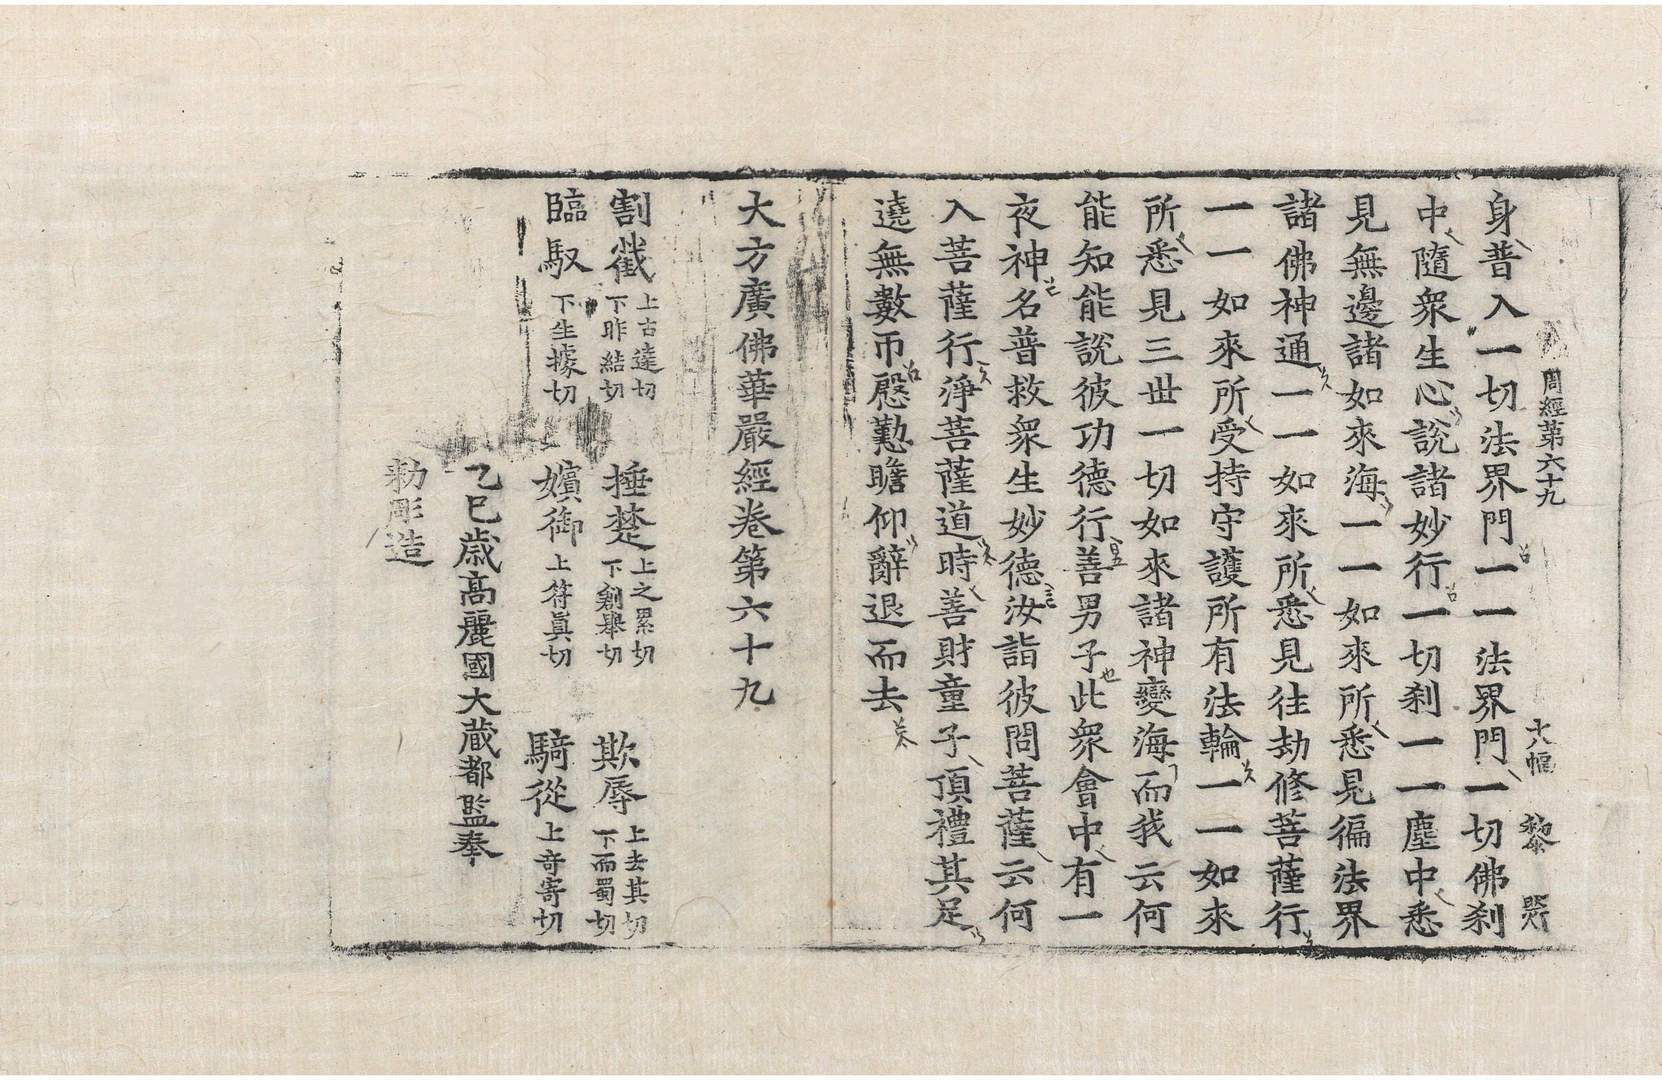 周經第六十九　十八幅　黎
身普入一切法界門一一法界門一切佛刹
中隨衆生心說諸妙行一切刹一一塵中悉
見無邊諸如來海一一如來所悉見徧法界
諸佛神通一一如來所悉見往劫修菩薩行
一一如來所受持守護所有法輪一一如來
所悉見三世一切如來諸神變海而我云何
能知能說彼功德行善男子此衆會中有一
夜神名普救衆生妙德汝詣彼問菩薩云何
入菩薩行淨菩薩道時善財童子頂禮其足
遶無數帀慇懃瞻仰辭退而去
大方廣佛華嚴經卷第六十九
割截上古達切下昨結切　捶楚上之累切下創舉切　欺辱上去其切下而蜀切
臨馭下生據切　嬪御上符眞切　騎從上奇寄切
乙巳歲高麗國大藏都監奉
勅彫造